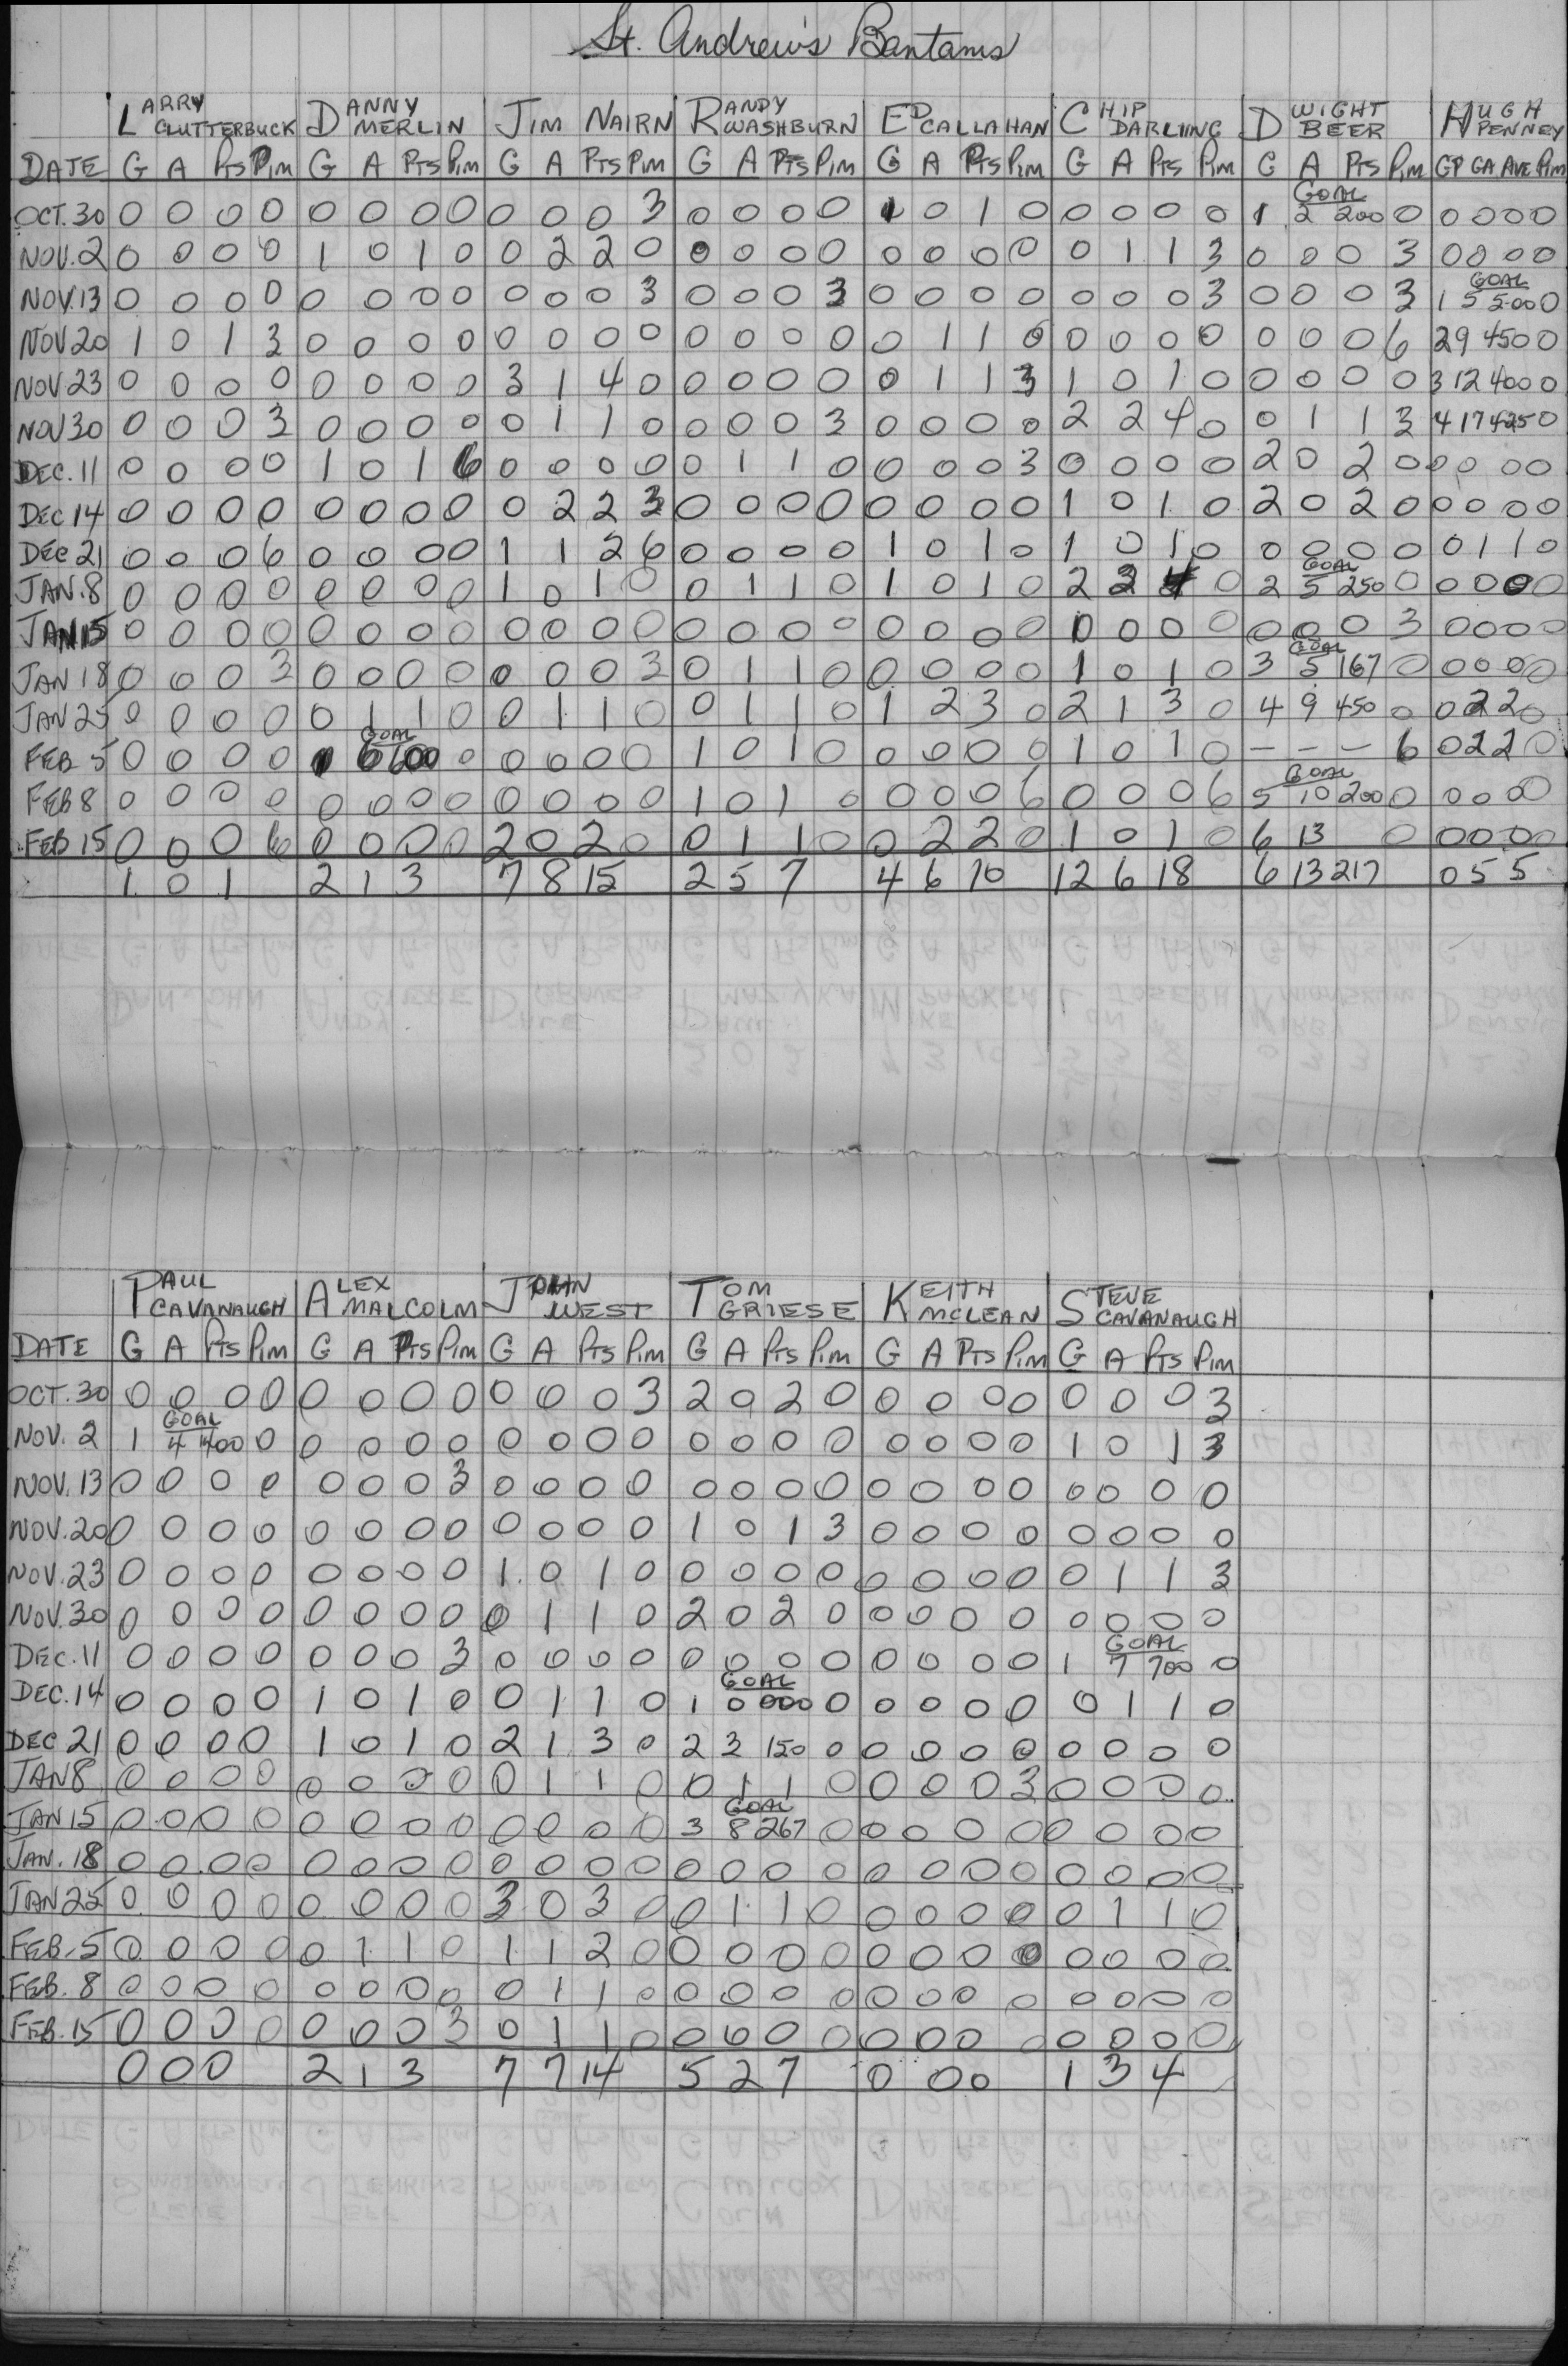 St. Andrew's Bantams
LARRY CLUTTERBUCK DANNY MERLIN JIM NAIRN RANDY WASHBURN ED CALLAHAN CHIP DARLING DWIGHT BEER HUGH PENNEY
DATE G A Pts Pim G A Pts Pim G A Pts Pim G A Pts Pim G A Pts Pim G A Pts Pim G A Pts Pim GP GA AVE Pim
OCT. 30 0 0 0 0 0 0 0 0 0 0 0 3 0 0 0 0 1 0 1 0 0 0 0 0 1 GOAL 2 200 0 0 0 0 0
NOV. 2 0 0 0 0 1 0 1 0 0 2 2 0 0 0 0 0 0 0 0 0 0 1 1 3 0 0 0 3 0 0 0 0
NOV. 13 0 0 0 0 0 0 0 0 0 0 0 3 0 0 0 3 0 0 0 0 0 0 0 3 0 0 0 3 1 GOAL 5 5.00 0
NOV 20 1 0 1 3 0 0 0 0 0 0 0 0 0 0 0 0 0 1 1 0 0 0 0 0 0 0 0 6 2 9 450 0
NOV 23 0 0 0 0 0 0 0 0 3 1 4 0 0 0 0 0 0 1 1 3 1 0 1 0 0 0 0 0 3 12 400 0
NOV 30 0 0 0 3 0 0 0 0 0 1 1 0 0 0 0 3 0 0 0 0 2 2 4 0 0 1 1 3 4 17 425 0
DEC. 11 0 0 0 0 1 0 1 6 0 0 0 0 0 1 1 0 0 0 0 3 0 0 0 0 2 0 2 0 0 0 0 0
DEC 14 0 0 0 0 0 0 0 0 0 2 2 3 0 0 0 0 0 0 0 0 1 0 1 0 2 0 2 0 0 0 0 0
DEC 21 0 0 0 6 0 0 0 0 1 1 2 6 0 0 0 0 1 0 1 0 1 0 1 0 0 0 0 0 0 1 1 0
JAN. 8 0 0 0 0 0 0 0 0 1 0 1 0 0 1 1 0 1 0 1 0 2 2 4 0 2 GOAL 5 250 0 0 0 0 0
JAN 15 0 0 0 0 0 0 0 0 0 0 0 0 0 0 0 0 0 0 0 0 0 0 0 0 0 0 0 3 0 0 0 0
JAN 18 0 0 0 3 0 0 0 0 0 0 0 3 0 1 1 0 0 0 0 0 1 0 1 0 3 GOAL 5 167 0 0 0 0 0
JAN 25 0 0 0 0 0 1 1 0 0 1 1 0 0 1 1 0 1 2 3 0 2 1 3 0 4 9 450 0 0 2 2 0
FEB 5 0 0 0 0 1 GOAL 6 600 0 0 0 0 0 1 0 1 0 0 0 0 0 1 0 1 0 – – – 6 0 2 2 0
FEB 8 0 0 0 0 0 0 0 0 0 0 0 0 1 0 1 0 0 0 0 6 0 0 0 6 5 GOAL 10 200 0 0 0 0 0
FEB 15 0 0 0 6 0 0 0 0 2 0 2 0 0 1 1 0 0 2 2 0 1 0 1 0 6 13 0 0 0 0 0
1 0 1 2 1 3 7 8 15 2 5 7 4 6 10 12 6 18 6 13 217 0 5 5
PAUL CAVANAUGH ALEX MALCOLM JOHN WEST TOM GRIESE KEITH MCLEAN STEVE CAVANAUGH
DATE G A Pts Pim G A Pts Pim G A Pts Pim G A Pts Pim G A Pts Pim G A Pts Pim
OCT. 30 0 0 0 0 0 0 0 0 0 0 0 3 2 0 2 0 0 0 0 0 0 0 0 3
NOV. 2 1 GOAL 4 400 0 0 0 0 0 0 0 0 0 0 0 0 0 0 0 0 0 1 0 1 3
NOV. 13 0 0 0 0 0 0 0 3 0 0 0 0 0 0 0 0 0 0 0 0 0 0 0 0
NOV. 20 0 0 0 0 0 0 0 0 0 0 0 0 1 0 1 3 0 0 0 0 0 0 0 0
NOV. 23 0 0 0 0 0 0 0 0 1 0 1 0 0 0 0 0 0 0 0 0 0 1 1 3
NOV. 30 0 0 0 0 0 0 0 0 0 1 1 0 2 0 2 0 0 0 0 0 0 0 0 0
DEC. 11 0 0 0 0 0 0 0 3 0 0 0 0 0 0 0 0 0 0 0 0 1 GOAL 7 700 0
DEC. 14 0 0 0 0 1 0 1 0 0 1 1 0 1 GOAL 0 000 0 0 0 0 0 0 1 1 0
DEC 21 0 0 0 0 1 0 1 0 2 1 3 0 2 3 150 0 0 0 0 0 0 0 0 0
JAN 8 0 0 0 0 0 0 0 0 0 1 1 0 0 1 1 0 0 0 0 3 0 0 0 0
JAN 15 0 0 0 0 0 0 0 0 0 0 0 0 3 GOAL 8 267 0 0 0 0 0 0 0 0 0
JAN. 18 0 0 0 0 0 0 0 0 0 0 0 0 0 0 0 0 0 0 0 0 0 0 0 0
JAN 25 0 0 0 0 0 0 0 0 3 0 3 0 0 1 1 0 0 0 0 0 0 1 1 0
FEB. 5 0 0 0 0 0 1 1 0 1 1 2 0 0 0 0 0 0 0 0 0 0 0 0 0
FEB. 8 0 0 0 0 0 0 0 0 0 1 1 0 0 0 0 0 0 0 0 0 0 0 0 0
FEB. 15 0 0 0 0 0 0 0 3 0 1 1 0 0 0 0 0 0 0 0 0 0 0 0 0
0 0 0 2 1 3 7 7 14 5 2 7 0 0 0 1 3 4